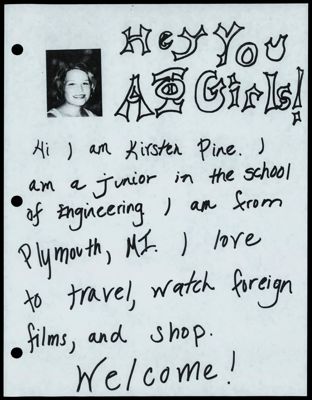 Hey You
AΦ Girls!
Hi I am Kirsten Pine. I
am a junior in the school
of Engineering I am from
Plymouth, MI. I love
to travel, watch foreign
films, and shop.
Welcome!